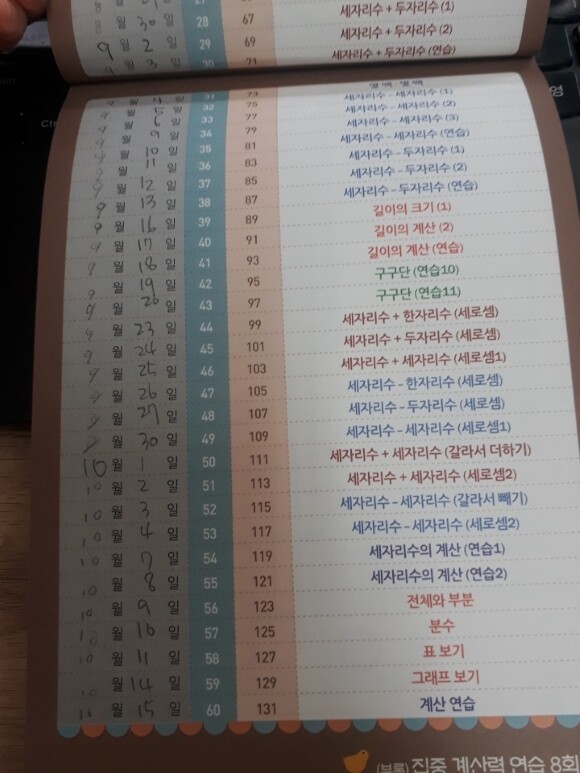 8 월 30 일 28 67 세자리수 + 두자리수 (1)
9 월 2 일 29 69 세자리수 + 두자리수 (2)
9 월 3 일 30 71 세자리수 + 두자리수 (연습)
월 4 일 31 73 세자리수 - 세자리수 (1)
9 월 5 일 32 75 세자리수 - 세자리수 (2)
9 월 6 일 33 77 세자리수 - 세자리수 (3)
9 월 9 일 34 79 세자리수 - 세자리수 (연습)
9 월 10 일 35 81 세자리수 - 두자리수 (1)
9 월 11 일 36 83 세자리수 - 두자리수 (2)
9 월 12 일 37 85 세자리수 - 두자리수 (연습)
9 월 13 일 38 87 길이의 크기 (1)
9 월 16 일 39 89 길이의 계산 (2)
9 월 17 일 40 91 길이의 계산 (연습)
9 월 18 일 41 93 구구단 (연습10)
9 월 19 일 42 95 구구단 (연습11)
9 월 20 일 43 97 세자리수 + 한자리수 (세로셈)
9 월 23 일 44 99 세자리수 + 두자리수 (세로셈)
9 월 24 일 45 101 세자리수 + 세자리수 (세로셈1)
9 월 25 일 46 103 세자리수 - 한자리수 (세로셈)
9 월 26 일 47 105 세자리수 - 두자리수 (세로셈)
9 월 27 일 48 107 세자리수 - 세자리수 (세로셈1)
9 월 30 일 49 109 세자리수 + 세자리수 (갈라서 더하기)
10 월 1 일 50 111 세자리수 + 세자리수 (세로셈2)
10 월 2 일 51 113 세자리수 - 세자리수 (갈라서 빼기)
10 월 3 일 52 115 세자리수 - 세자리수 (세로셈2)
10 월 4 일 53 117 세자리수의 계산 (연습1)
10 월 7 일 54 119 세자리수의 계산 (연습2)
10 월 8 일 55 121 전체와 부분
10 월 9 일 56 123 분수
10 월 10 일 57 125 표 보기
10 월 11 일 58 127 그래프 보기
10 월 14 일 59 129 계산 연습
10 월 15 일 60 131
(부록) 집중 계산력 연습 8회